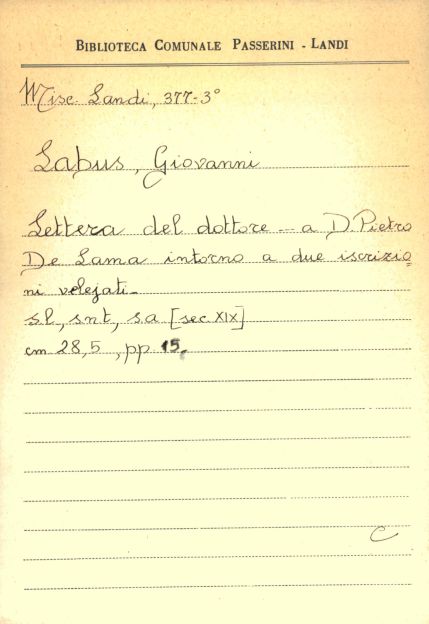 BIBLIOTECA COMUNALE PASSERINI - LANDI
Misc. Landi, 377-3°
Labus, Giovanni
Lettera del dottore --- a D. Pietro
De Lama intorno a due iscrizio=
ni velejati_
sl, snt, sa [sec. XIX]
cm 28,5 , pp 15.
C